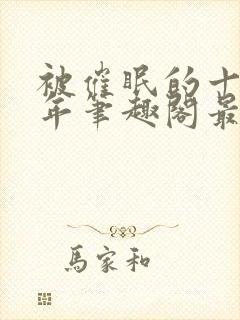 被催眠的十
年笔趣阁最
馬家和